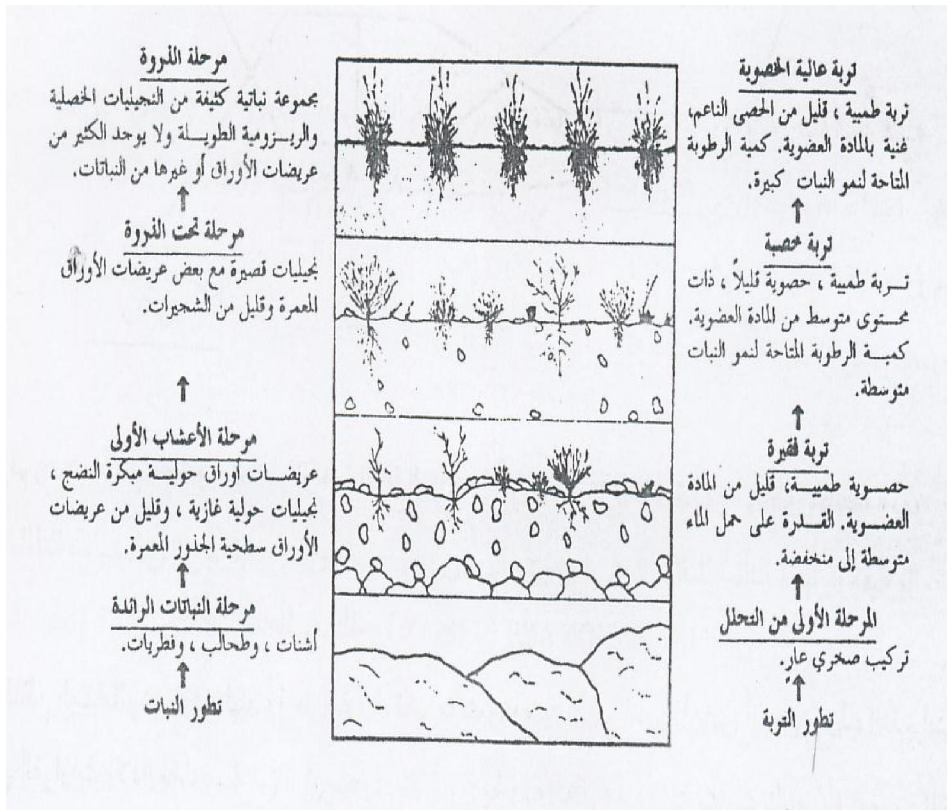 تربة عالية الخصوبة
تربة طميية ، قليل من الحصى الناعم،
غنية بالمادة العضوية. كمية الرطوبة
المتاحة لنمو النبات كبيرة.
تربة خصبة
تربة طميية ، حصوية قليلاً ، ذات
محتوى متوسط من المادة العضوية.
كمية الرطوبة المتاحة لنمو النبات
متوسطة.
تربة فقيرة
حصوية طميية، قليل من المادة
العضوية. القدرة على حمل الماء
متوسطة إلى منخفضة.
المرحلة الأولى من التحلل
تركيب صخري عارٍ.
تطور التربة
مرحلة الذروة
مجموعة نباتية كثيفة من النجيليات الخصلية
والريزومية الطويلة ولا يوجد الكثير من
عريضات الأوراق أو غيرها من النباتات.
مرحلة تحت الذروة
نجيليات قصيرة مع بعض عريضات الأوراق
المعمرة وقليل من الشجيرات.
مرحلة الأعشاب الأولى
عريضات أوراق حولية مبكرة النضج ،
نجيليات حولية غازية ، وقليل من عريضات
الأوراق سطحية الجذور المعمرة.
مرحلة النباتات الرائدة
أشنات ، وطحالب ، وفطريات.
تطور النبات